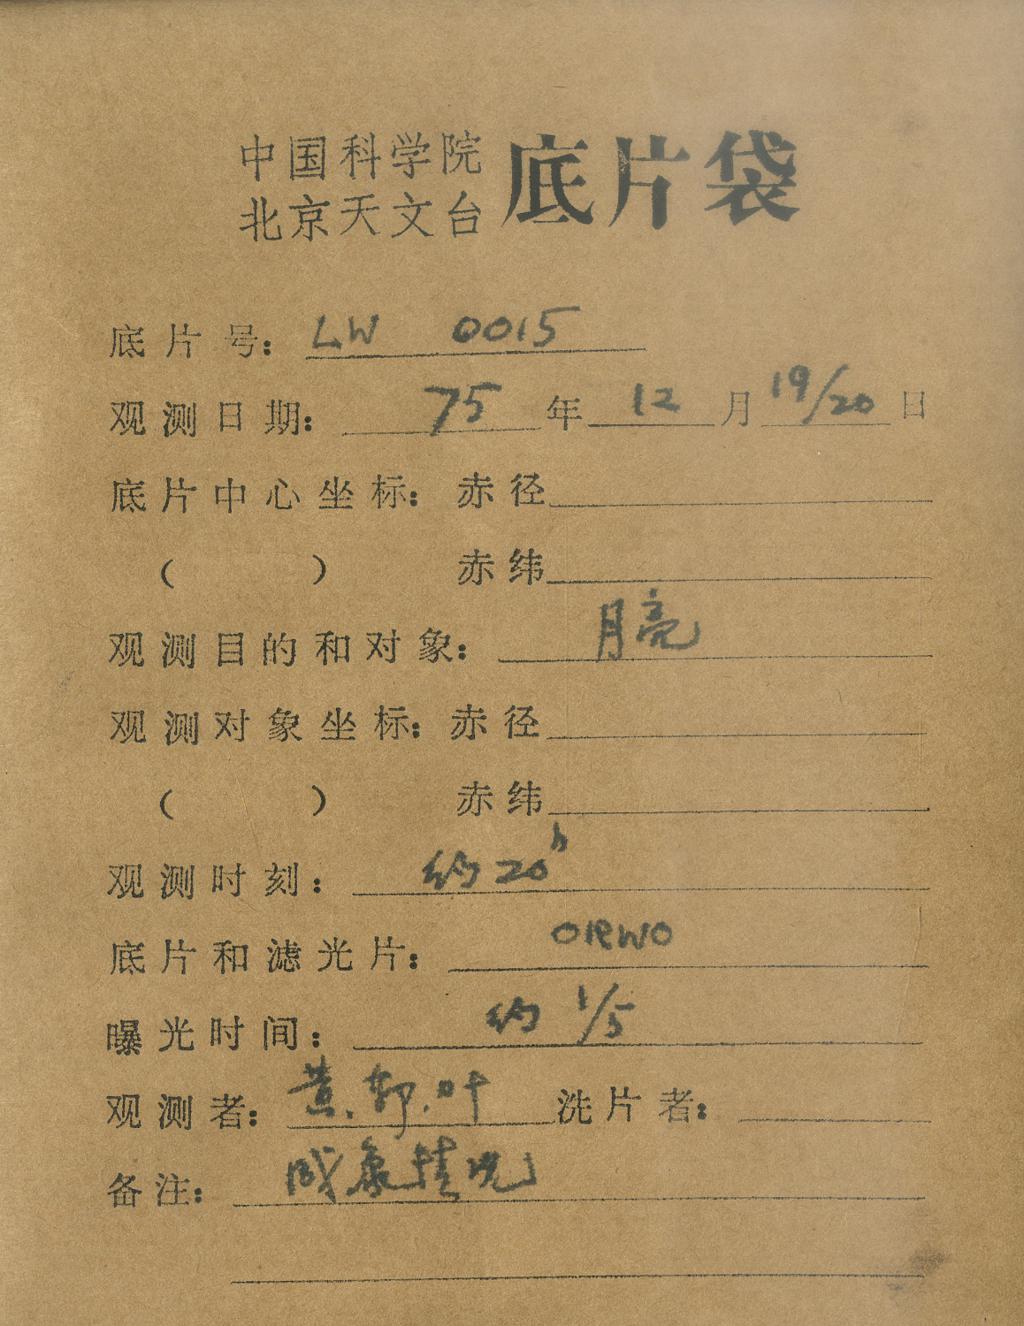 中国科学院
北京天文台
底片袋
底片号: LW 0015
观测日期: 75年12月19/20日
底片中心坐标: 赤径
( ) 赤纬
观测目的和对象: 月亮
观测对象坐标: 赤径
( ) 赤纬
观测时刻: 约20h
底片和滤光片: ORWO
曝光时间: 约 1/5
观测者: 黄、郭、叶 洗片者:
备注: 成象情况